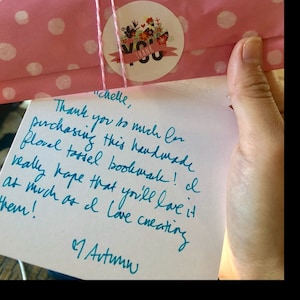 YOU
chelle,
Thank you so much for
purchasing this handmade
floral tassel bookmark! I
really hope that you'll love it
as much as I love creating
them!
Autumn